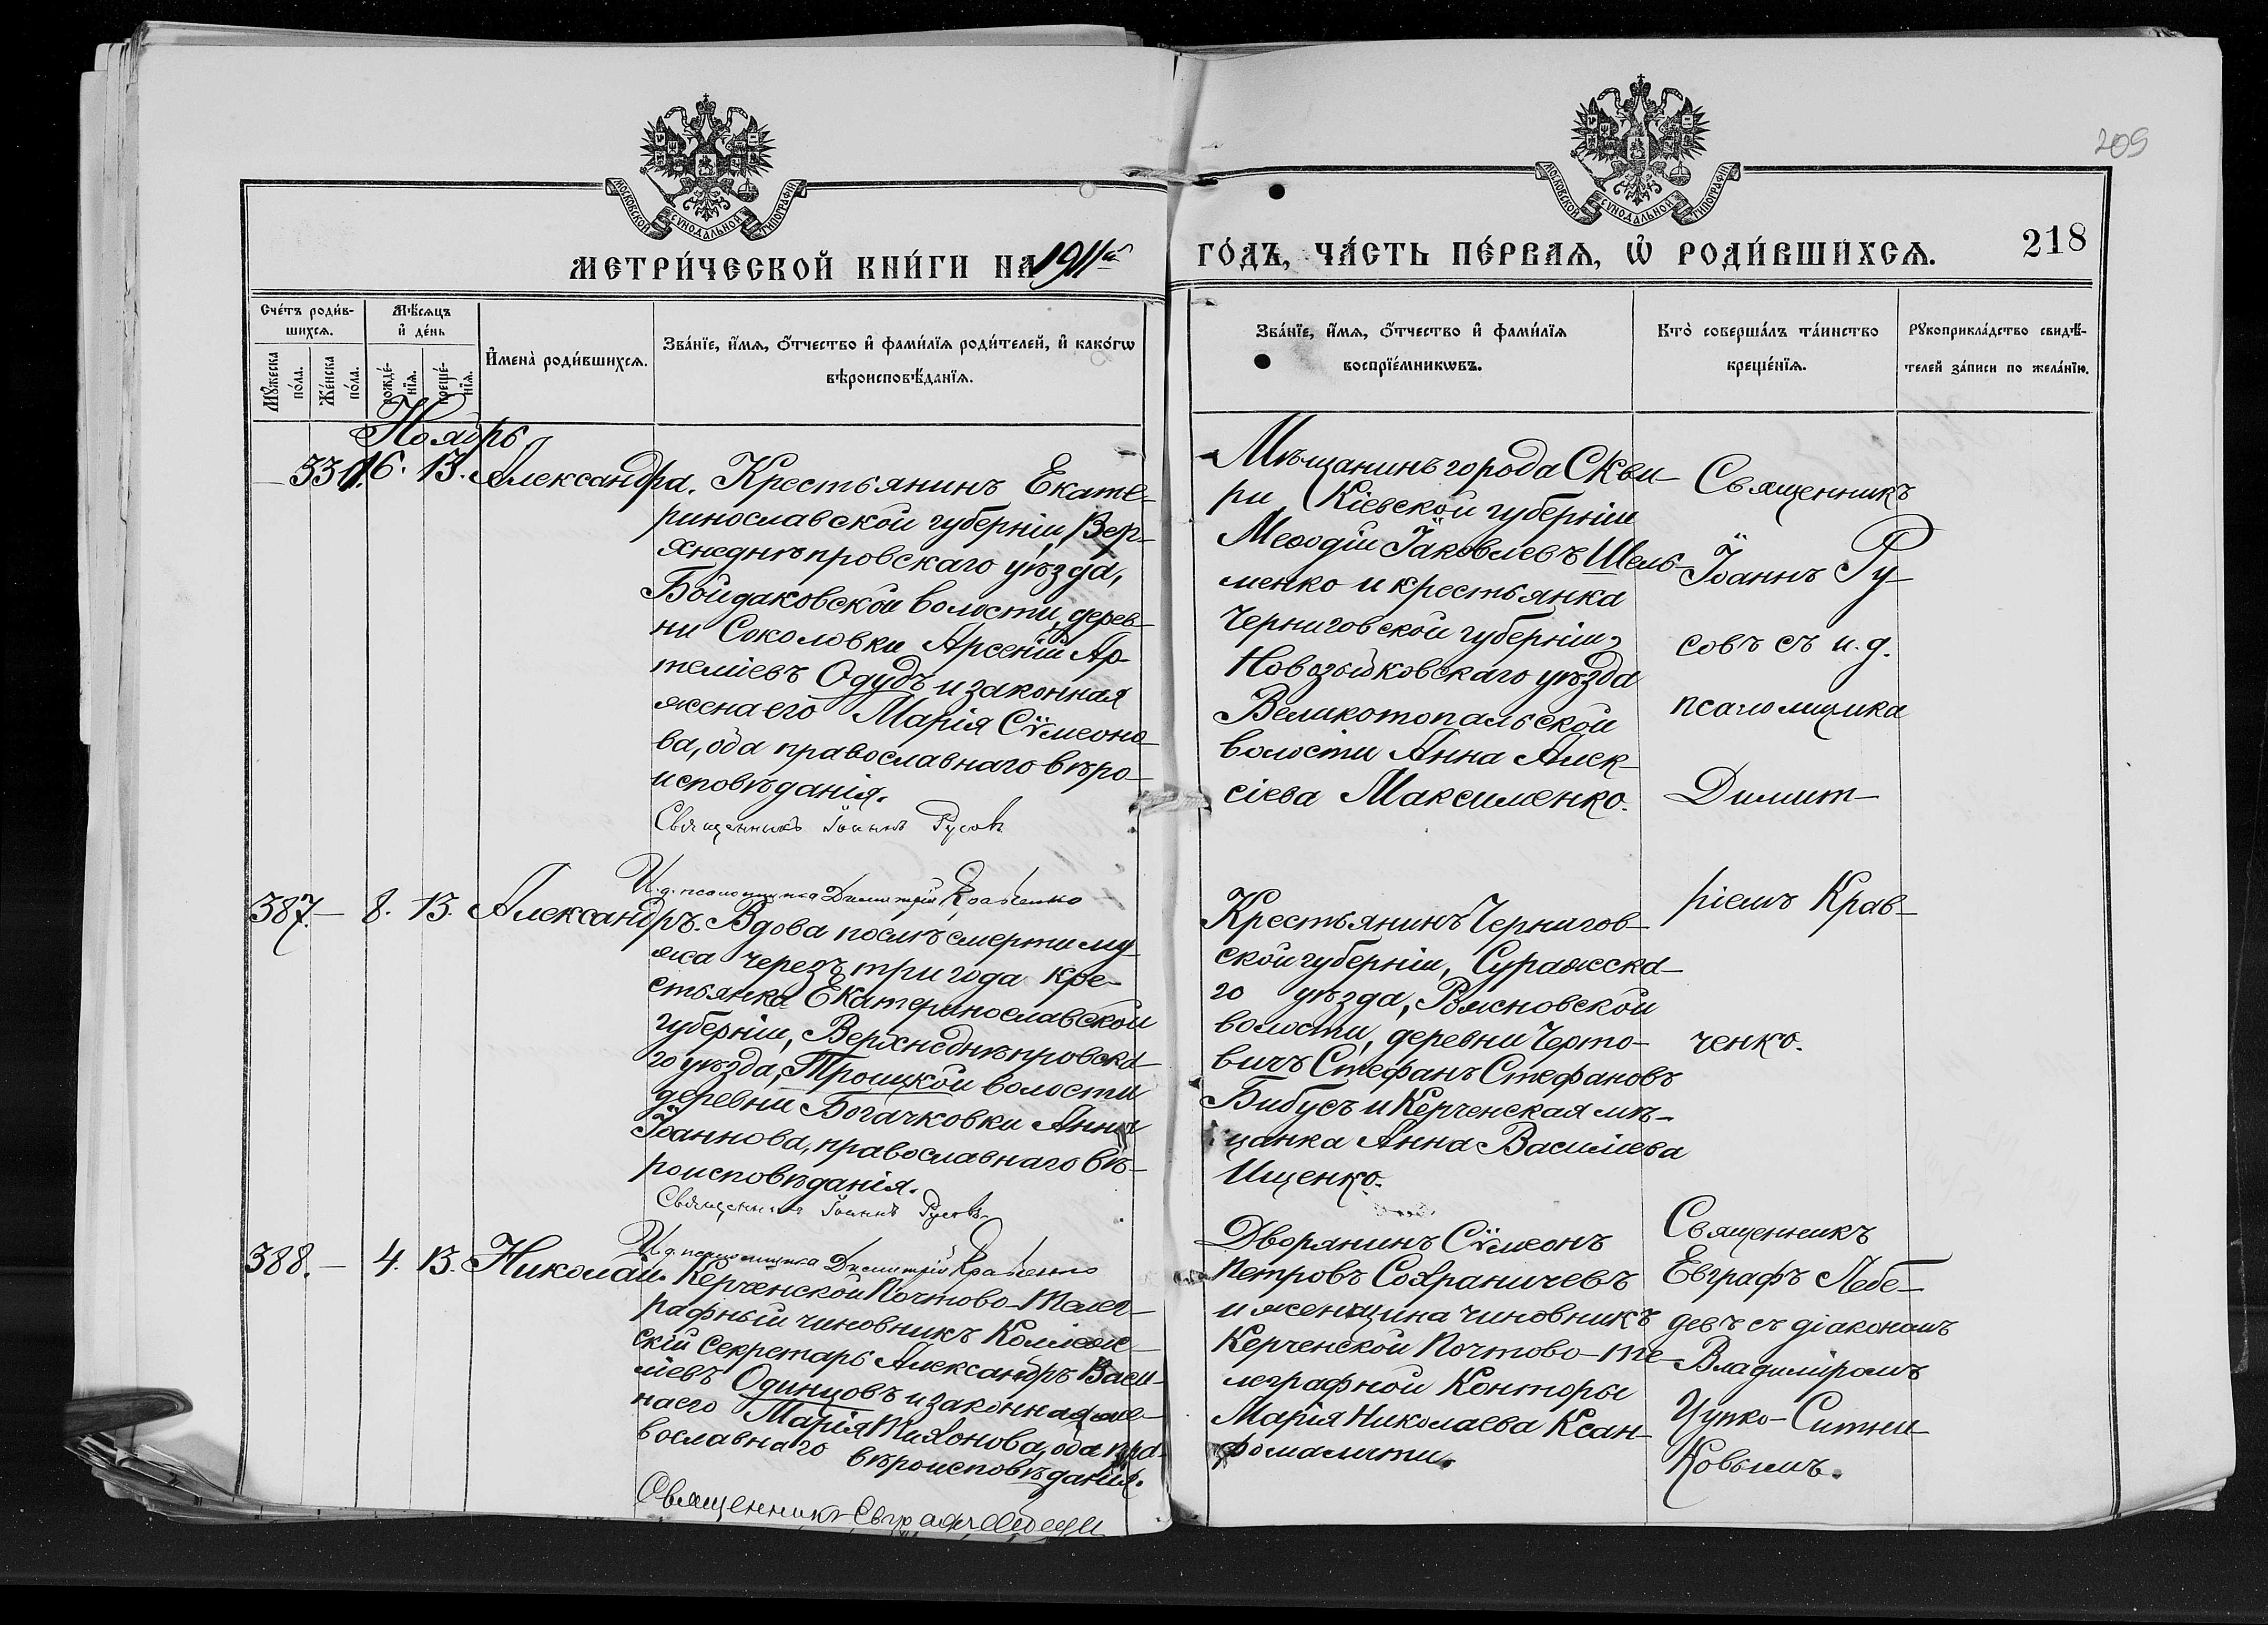 209
МОСКОВСКОЙ СѴНОДАЛЬНОЙ ТИПОГРАФІИ
МОСКОВСКОЙ СѴНОДАЛЬНОЙ ТИПОГРАФІИ
МЕТРИ́ЧЕСКОЙ КНИ́ГИ НА 1911й
ГО́ДЪ, ЧА́СТЬ ПЕ́РВАѦ, Ѡ РОДИ́ВШИХСѦ.
218
Сче́тъ роди́в-
шихсѧ.
Мꙋ́жеска
по́ла.
Же́нска
по́ла.
Мѣ́сѧцъ
и҆ де́нь
рожде́-
нїѧ.
креще́-
нїѧ.
И҆мена̀ роди́вшихсѧ.
Зва́нїе, и҆́мѧ, ѻ҆́тчество и҆ фами́лїѧ роди́телей, и҆ како́гѡ
вѣроисповѣ́данїѧ.
Зва́нїе, и҆́мѧ, ѻ҆́тчество и҆ фами́лїѧ
воспрїе́мникѡвъ.
Кто̀ соверша́лъ та́инство
креще́нїѧ.
Рꙋкоприкла́дство свидѣ́-
телей за́писи по жела́нїю.
Ноябрь
— 331. 6. 13. Александра. Крестьянинъ Екате-
ринославской губерніи, Вер-
хнеднѣпровскаго уѣзда,
Бойдаковской волости, дерев-
ни Соколовки Арсеній Ар-
теміевъ Одудъ и законная
жена его Марія Сѵмеоно-
ва, оба православнаго вѣро-
исповѣданія.
Священникъ Іоаннъ Русовъ
И. д. псаломщика Димитрій Кравченко
Мѣщанинъ города Скви-
ри Кіевской губерніи
Меѳодій Іаковлевъ Шель-
менко и крестьянка
Черниговской губерніи,
Новозыбковскаго уѣзда
Великотопальской
волости Анна Алек-
сіева Максименко.
Священникъ
Іоаннъ Ру-
совъ съ и. д.
псаломщика
Димит-
ріемъ Крав-
ченко.
387. — 8. 13. Александръ. Вдова послѣ смерти му-
жа черезъ три года кре-
стьянка Екатеринославской
губерніи, Верхнеднѣпровска-
го уѣзда, Троицкой волости
деревни Богачковки Анна
Іоаннова, православнаго вѣ-
роисповѣданія.
Священникъ Іоаннъ Русовъ
И. д. псаломщика Димитрій Кравченко
Крестьянинъ Чернигов-
ской губерніи, Суражска-
го уѣзда, Роясновской
волости, деревни Черто-
вичъ Стефанъ Стефановъ
Бибусъ и Керченская мѣ-
щанка Анна Василіева
Ищенко.
388. — 4. 13. Николай. Керченской Почтово-Телег-
рафный чиновникъ Коллеж-
скій Секретарь Александръ Васи-
ліевъ Одинцовъ и законная же-
на его Марія Тихонова, оба пра-
вославнаго вѣроисповѣданія.
Священникъ Евграфъ
Дворянинъ Сѵмеонъ
Петровъ Софраничевъ
и женщина чиновникъ
Керченской Почтово-те-
леграфной Конторы
Марія Николаева Ксан-
фомалити.
Священникъ
Евграфъ Лебе-
девъ съ діакономъ
Владиміромъ
Цупко-Ситни-
ковымъ.